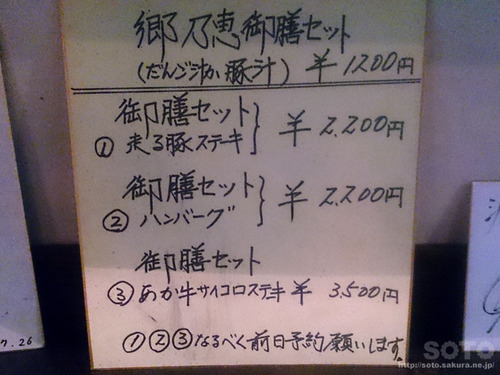 郷乃恵御膳セット
(だんご汁か豚汁) ¥1200円
御膳セット
①走る豚ステーキ ¥2,200円
御膳セット
②ハンバーグ ¥2,200円
御膳セット
③あか牛サイコロステーキ ¥3,500円
①②③なるべく前日予約願いします。
7.26
SOTO
http://soto.sakura.ne.jp/